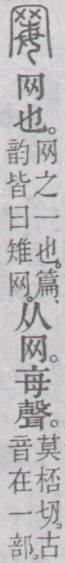 网也。
网之一也。篇、
韵皆曰雉网。
从网。每聲。
莫桮切。古
音在一部。